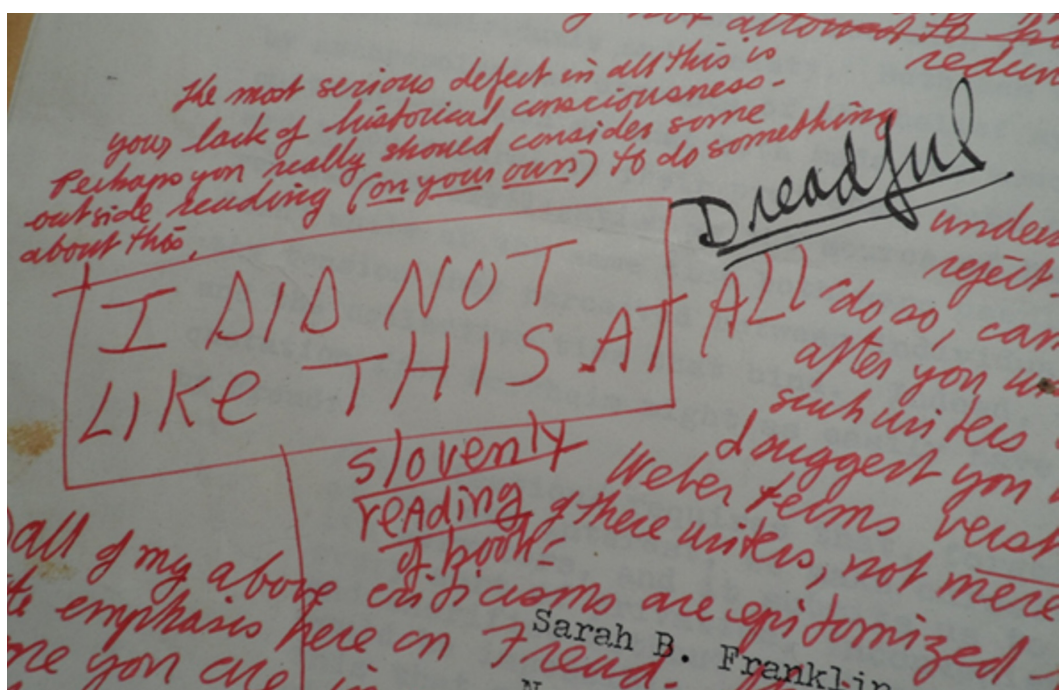 not allowed to
redun
The most serious defect in all this is
your lack of historical consciousness.
Perhaps you really should consider some
outside reading (on your own) to do something
about this.
Dreadful
unders
reject
I DID NOT
LIKE THIS AT ALL
do so, can
after you
such writers
I suggest you
Weber terms verst
of these writers, not mere
slovenly
reading
of book-
all of my above criticisms are epitomized
te emphasis here on Freud.
me you are in
Sarah B. Franklin